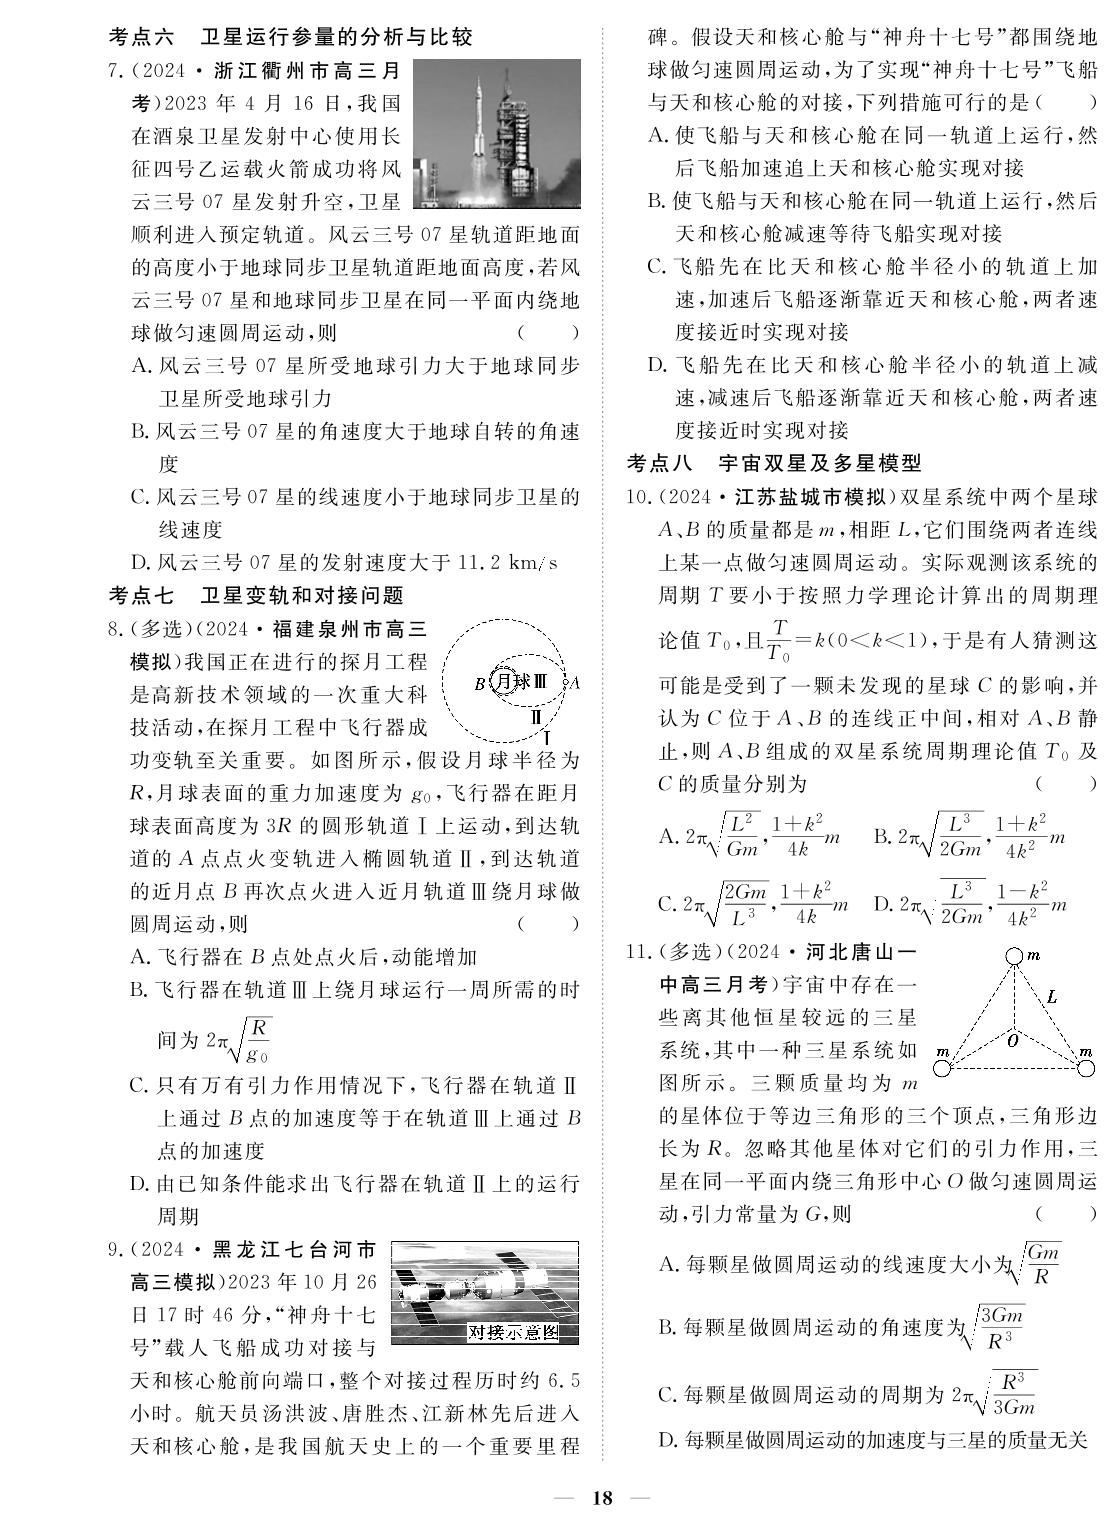 考点六　卫星运行参量的分析与比较
7.(2024·浙江衢州市高三月
考)2023 年 4 月 16 日,我国
在酒泉卫星发射中心使用长
征四号乙运载火箭成功将风
云三号 07 星发射升空,卫星
顺利进入预定轨道。风云三号 07 星轨道距地面
的高度小于地球同步卫星轨道距地面高度,若风
云三号 07 星和地球同步卫星在同一平面内绕地
球做匀速圆周运动,则 (　　)
A. 风云三号 07 星所受地球引力大于地球同步
卫星所受地球引力
B. 风云三号 07 星的角速度大于地球自转的角速
度
C. 风云三号 07 星的线速度小于地球同步卫星的
线速度
D. 风云三号 07 星的发射速度大于 11.2 km/s
考点七　卫星变轨和对接问题
8.(多选)(2024·福建泉州市高三
模拟)我国正在进行的探月工程
是高新技术领域的一次重大科
技活动,在探月工程中飞行器成
功变轨至关重要。如图所示,假设月球半径为
R,月球表面的重力加速度为 g₀,飞行器在距月
球表面高度为 3R 的圆形轨道Ⅰ上运动,到达轨
道的 A 点点火变轨进入椭圆轨道Ⅱ,到达轨道
的近月点 B 再次点火进入近月轨道Ⅲ绕月球做
圆周运动,则 (　　)
B 月球 Ⅲ A
Ⅱ
Ⅰ
A. 飞行器在 B 点处点火后,动能增加
B. 飞行器在轨道Ⅲ上绕月球运行一周所需的时
间为 2π√(R/g₀)
C. 只有万有引力作用情况下,飞行器在轨道Ⅱ
上通过 B 点的加速度等于在轨道Ⅲ上通过 B
点的加速度
D. 由已知条件能求出飞行器在轨道Ⅱ上的运行
周期
9.(2024·黑龙江七台河市
高三模拟)2023 年 10 月 26
日 17 时 46 分,“神舟十七
号”载人飞船成功对接与
对接示意图
天和核心舱前向端口,整个对接过程历时约 6.5
小时。航天员汤洪波、唐胜杰、江新林先后进入
天和核心舱,是我国航天史上的一个重要里程
碑。假设天和核心舱与“神舟十七号”都围绕地
球做匀速圆周运动,为了实现“神舟十七号”飞船
与天和核心舱的对接,下列措施可行的是(　　)
A. 使飞船与天和核心舱在同一轨道上运行,然
后飞船加速追上天和核心舱实现对接
B. 使飞船与天和核心舱在同一轨道上运行,然后
天和核心舱减速等待飞船实现对接
C. 飞船先在比天和核心舱半径小的轨道上加
速,加速后飞船逐渐靠近天和核心舱,两者速
度接近时实现对接
D. 飞船先在比天和核心舱半径小的轨道上减
速,减速后飞船逐渐靠近天和核心舱,两者速
度接近时实现对接
考点八　宇宙双星及多星模型
10.(2024·江苏盐城市模拟)双星系统中两个星球
A、B 的质量都是 m,相距 L,它们围绕两者连线
上某一点做匀速圆周运动。实际观测该系统的
周期 T 要小于按照力学理论计算出的周期理
论值 T₀,且T/T₀=k(0<k<1),于是有人猜测这
可能是受到了一颗未发现的星球 C 的影响,并
认为 C 位于 A、B 的连线正中间,相对 A、B 静
止,则 A、B 组成的双星系统周期理论值 T₀ 及
C 的质量分别为 (　　)
A. 2π√(L²/Gm),(1+k²)/4k m　B. 2π√(L³/2Gm),(1+k²)/4k² m
C. 2π√(2Gm/L³),(1+k²)/4k m　D. 2π√(L³/2Gm),(1-k²)/4k² m
11.(多选)(2024·河北唐山一
中高三月考)宇宙中存在一
些离其他恒星较远的三星
系统,其中一种三星系统如
图所示。三颗质量均为 m
m
L
O
m m
的星体位于等边三角形的三个顶点,三角形边
长为 R。忽略其他星体对它们的引力作用,三
星在同一平面内绕三角形中心 O 做匀速圆周运
动,引力常量为 G,则 (　　)
A. 每颗星做圆周运动的线速度大小为√(Gm/R)
B. 每颗星做圆周运动的角速度为√(3Gm/R³)
C. 每颗星做圆周运动的周期为 2π√(R³/3Gm)
D. 每颗星做圆周运动的加速度与三星的质量无关
— 18 —